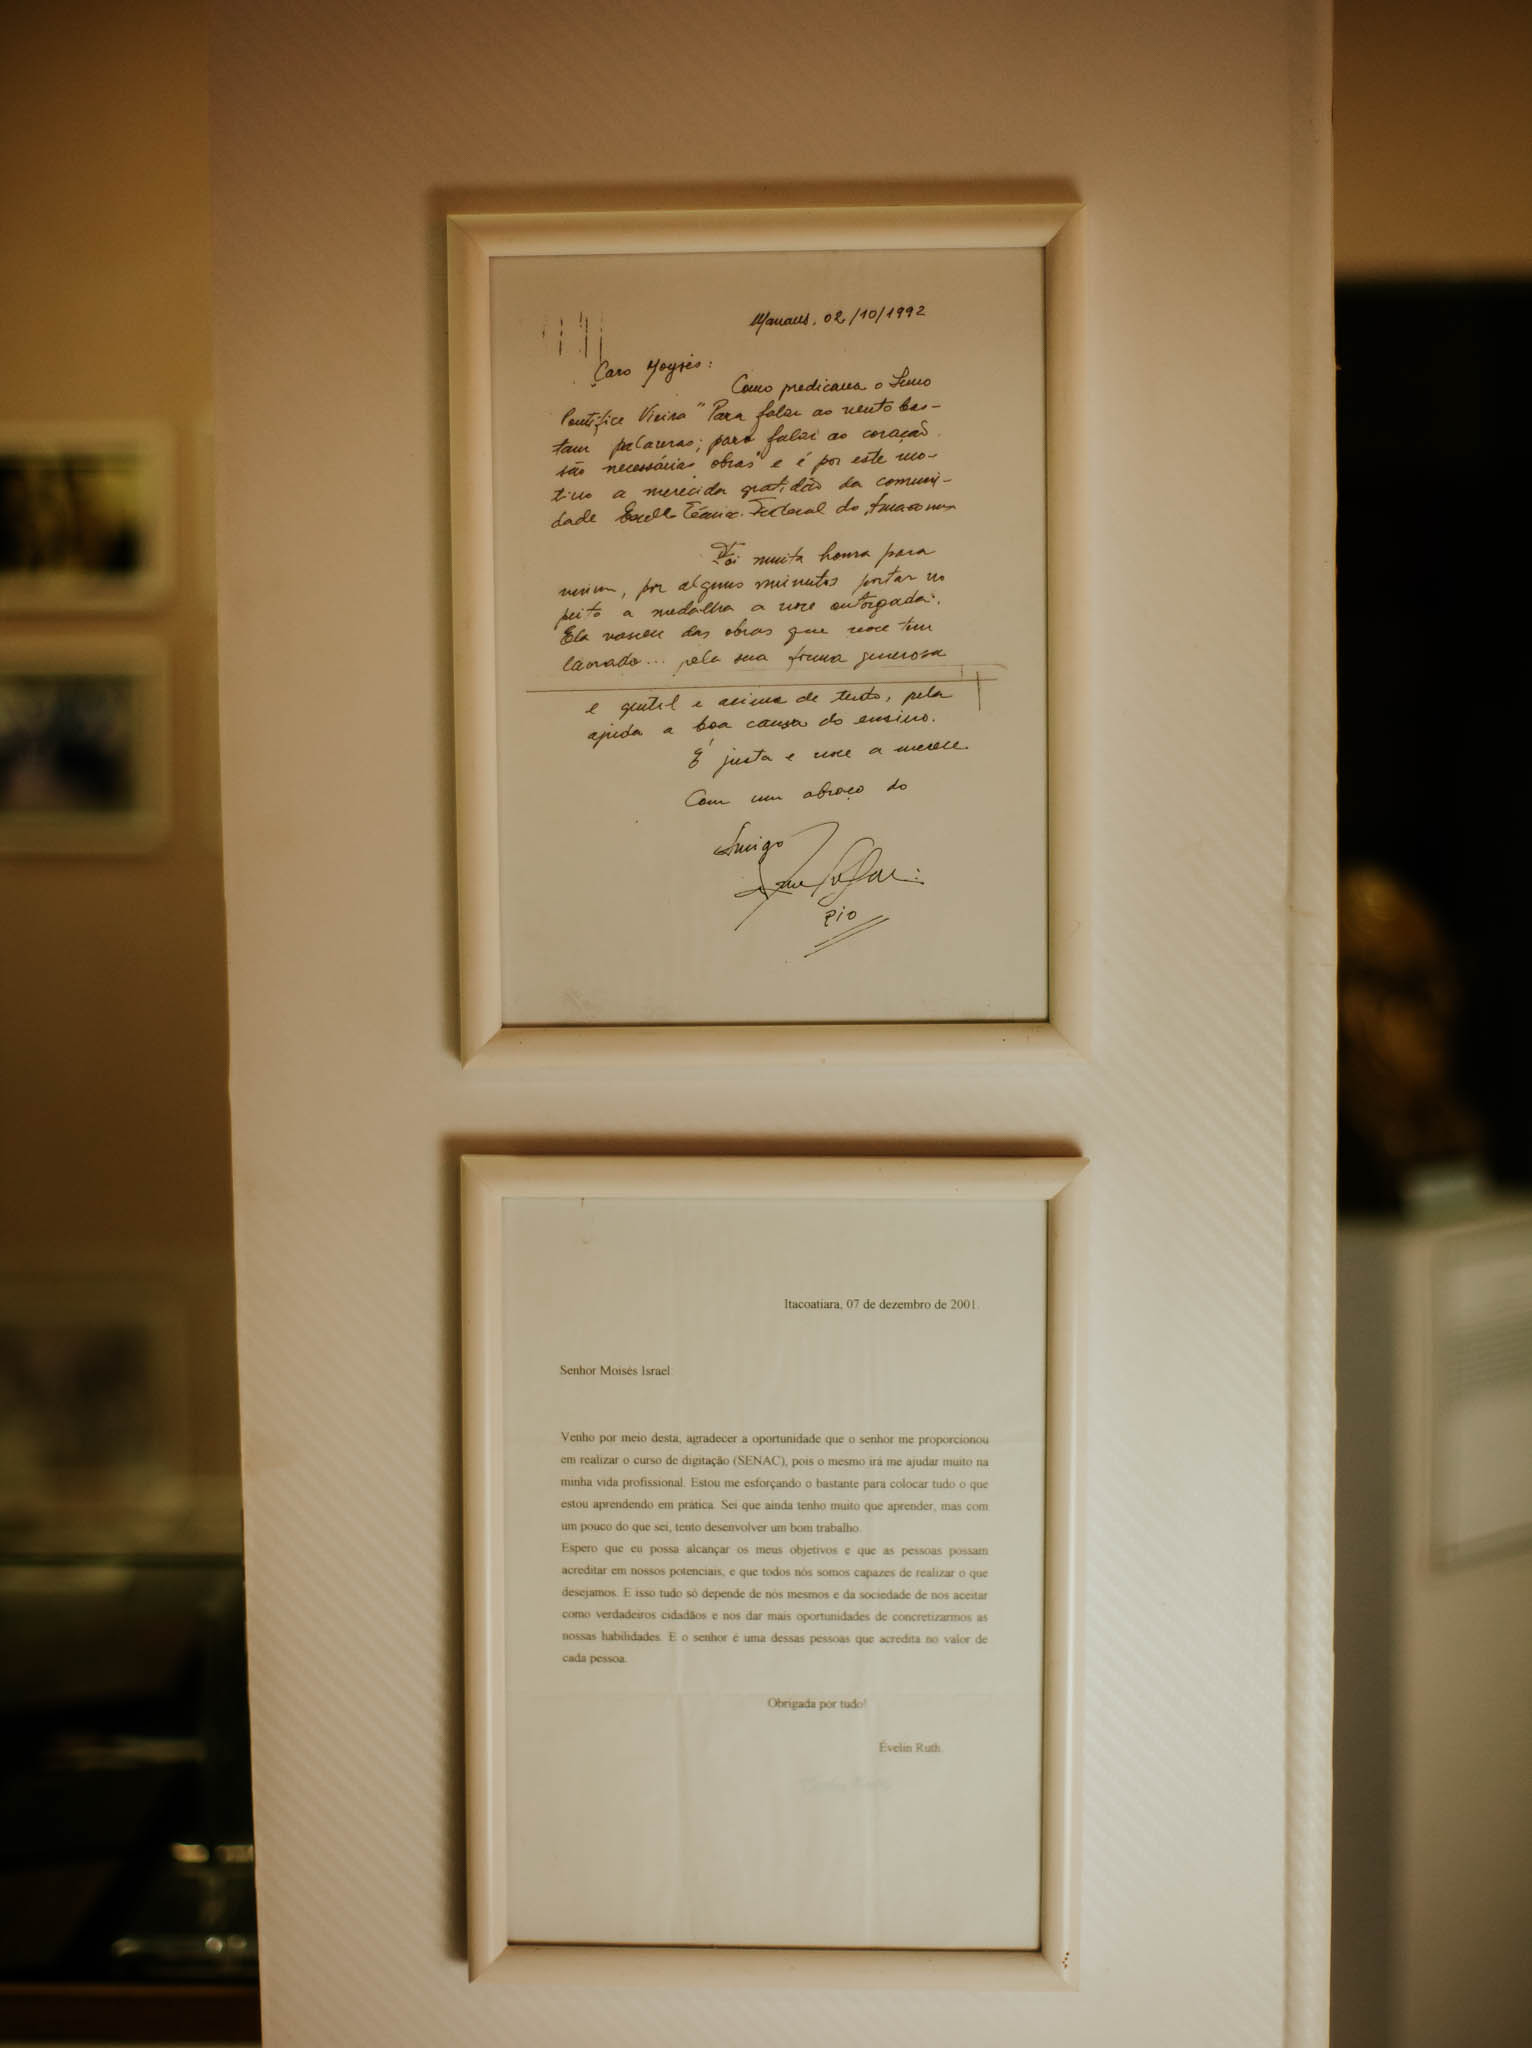 Manaus, 02/10/1992
Caro Moysés:
Como predicava o Sumo
Pontífice Vieira "Para falar ao vento bas-
tam palavras; para falar ao coração
são necessárias obras" e é por este mo-
tivo a merecida gratidão da comuni-
dade Escola Técnica Federal do Amazonas
Foi muita honra para
mim, por alguns minutos portar no
peito a medalha a voce outorgada.
Ela nasceu das obras que voce tem
lavrado... pela sua forma generosa
e gentil e acima de tudo, pela
ajuda a boa causa do ensino.
É justa e voce a merece
Com um abraço do
Amigo
Itacoatiara, 07 de dezembro de 2001.
Senhor Moisés Israel
Venho por meio desta, agradecer a oportunidade que o senhor me proporcionou
em realizar o curso de digitação (SENAC), pois o mesmo irá me ajudar muito na
minha vida profissional. Estou me esforçando o bastante para colocar tudo o que
estou aprendendo em prática. Sei que ainda tenho muito que aprender, mas com
um pouco do que sei, tento desenvolver um bom trabalho.
Espero que eu possa alcançar os meus objetivos e que as pessoas possam
acreditar em nossos potenciais, e que todos nós somos capazes de realizar o que
desejamos. E isso tudo só depende de nós mesmos e da sociedade de nos aceitar
como verdadeiros cidadãos e nos dar mais oportunidades de concretizarmos as
nossas habilidades. E o senhor é uma dessas pessoas que acredita no valor de
cada pessoa.
Obrigada por tudo!
Évelin Ruth